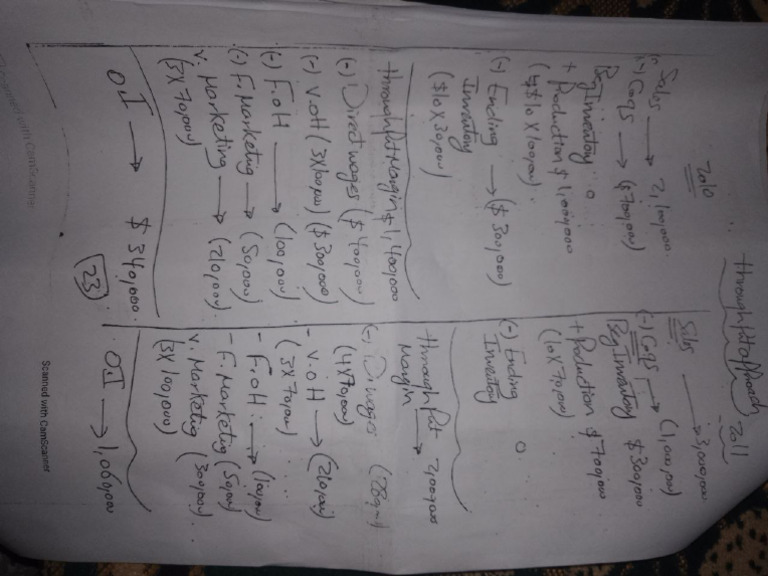 throughput approach
2010
Sales → 2,100,000
(-) Cogs → ($700,000)
Beg Inventory 0
+ Production $1,000,000
($10 X 100,000)
(-) Ending → ($300,000)
Inventory
($10 X 30,000)
throughput Margin $1,400,000
(-) Direct wages ($400,000)
(-) V.OH (3X100,000) ($300,000)
(-) F.OH → (100,000)
(-) F.Marketing → (50,000)
V. Marketing → (210,000)
(3X70,000)
O.I → $340,000
23
2011
Sales → 3,000,000
(-) Cogs → (1,000,000)
Beg Inventory $300,000
+ Production $700,000
(10X70,000)
(-) Ending 0
Inventory
throughput → 2,000,000
Margin
(-) D.wages
(4X70,000)
- V.OH → (210,000)
(3X70,000)
- F.OH → (100,000)
- F.Marketing (50,000)
V. Marketing (300,000)
(3X100,000)
O.I → 1,060,000
Scanned with CamScanner
Scanned with CamScanner